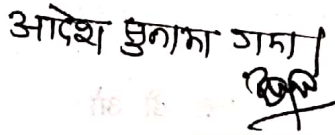 आदेश सुनाया गया।